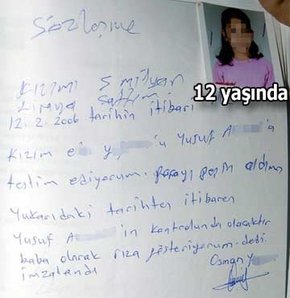 Sözleşme
12 yaşında
Kızımı 5 milyar
Liraya Sattım
12.2.2006 tarihin itibari
Kızım e Yusuf A 'a
teslim ediyorum. parayı peşin aldım
Yukarıdaki tarihten itibaren
Yusuf A in kontrolunda olacaktır
baba olarak rıza gösteriyorum dedi.
imzalandı Osman Y